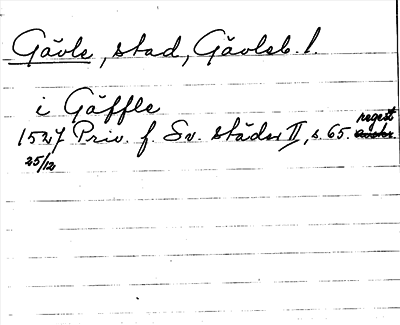 Gävle, stad, Gävleb. l.
i Gäffle
regest
1527 Priv. f. Sv. städer II, s. 65.
25/12